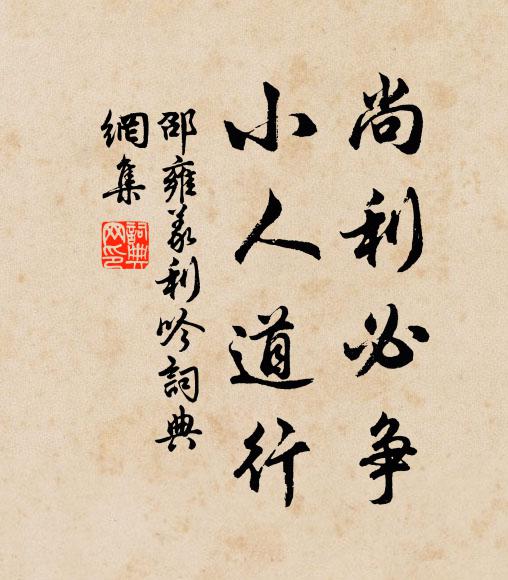 尚利必争
小人道行
邵雍義利吟詞典
網集
詞典
网印